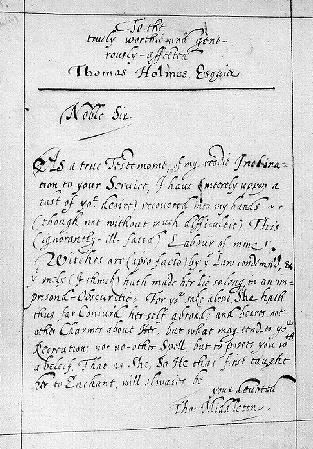 To the
truly-worthie and Gene-
rously-affected
Thomas Holmes Esquier
Noble Sir.
As a true Testemonie of my readie Inclina-
tion to your Service, I have (meerely upon a
tast of yor desire) recovered into my hands
(though not without much difficultie) This
(ignorantly-ill-fated) Labour of mine
Witches are (ipso facto) by ye Law condemn'd, &
yt onely (I thinck) hath made her lie so long in an im-
prisond-Obscuritie. For yor sake alone She hath
thus far Conjurd her self abroad; and beares no
other Charmes about her, but what may tend to yor
Recreation; nor no-other Spell, but to posses you wth
a beleif, That as She, So He that first taught
her to Enchant, will alwaies be
your devoted
Tho. Middleton